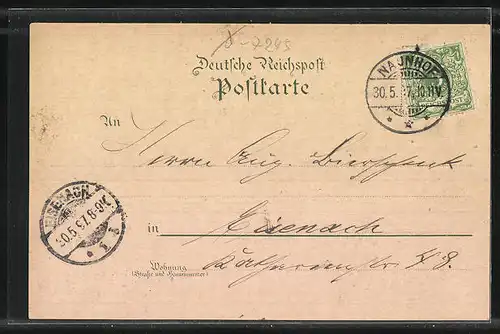 D-7245
Deutsche Reichspost
Postkarte
NAUNHOF
30.5.97.10-11V.
An
Herrn Aug. Bierschenk
EISENACH
30.5.97.8-9N.
in Eisenach
Wohnung
(Straße und Hausnummer)
Katharinenstr.